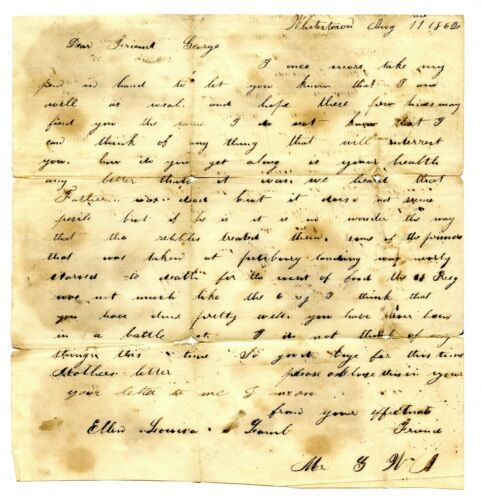 Whitestown Aug 11 1862
Dear Friend George
I once more take my
pen in hand to let you know that I am
well as usal. and hope these few lines may
find you the same I do not know that I
can think of any thing that will interrest
you. how do you get along is your health
any better than it was. we heard that
Father was dead but it does not seme
posile but if he is it is no wonder the way
that the rebbles treated them. some of the prisners
that was taken at pittsburg landing was nearly
starved to death for the want of food the Reg
was not much like the 6 reg I think that
you have done pretty well you have never been
in a battle yet. I do not think of any
thing this time So good bye for this time
Mothers letter please enclose this in your
your letter to me I mean
from your effectnate
Ellen Louisa Lamb Friend
Mr G W